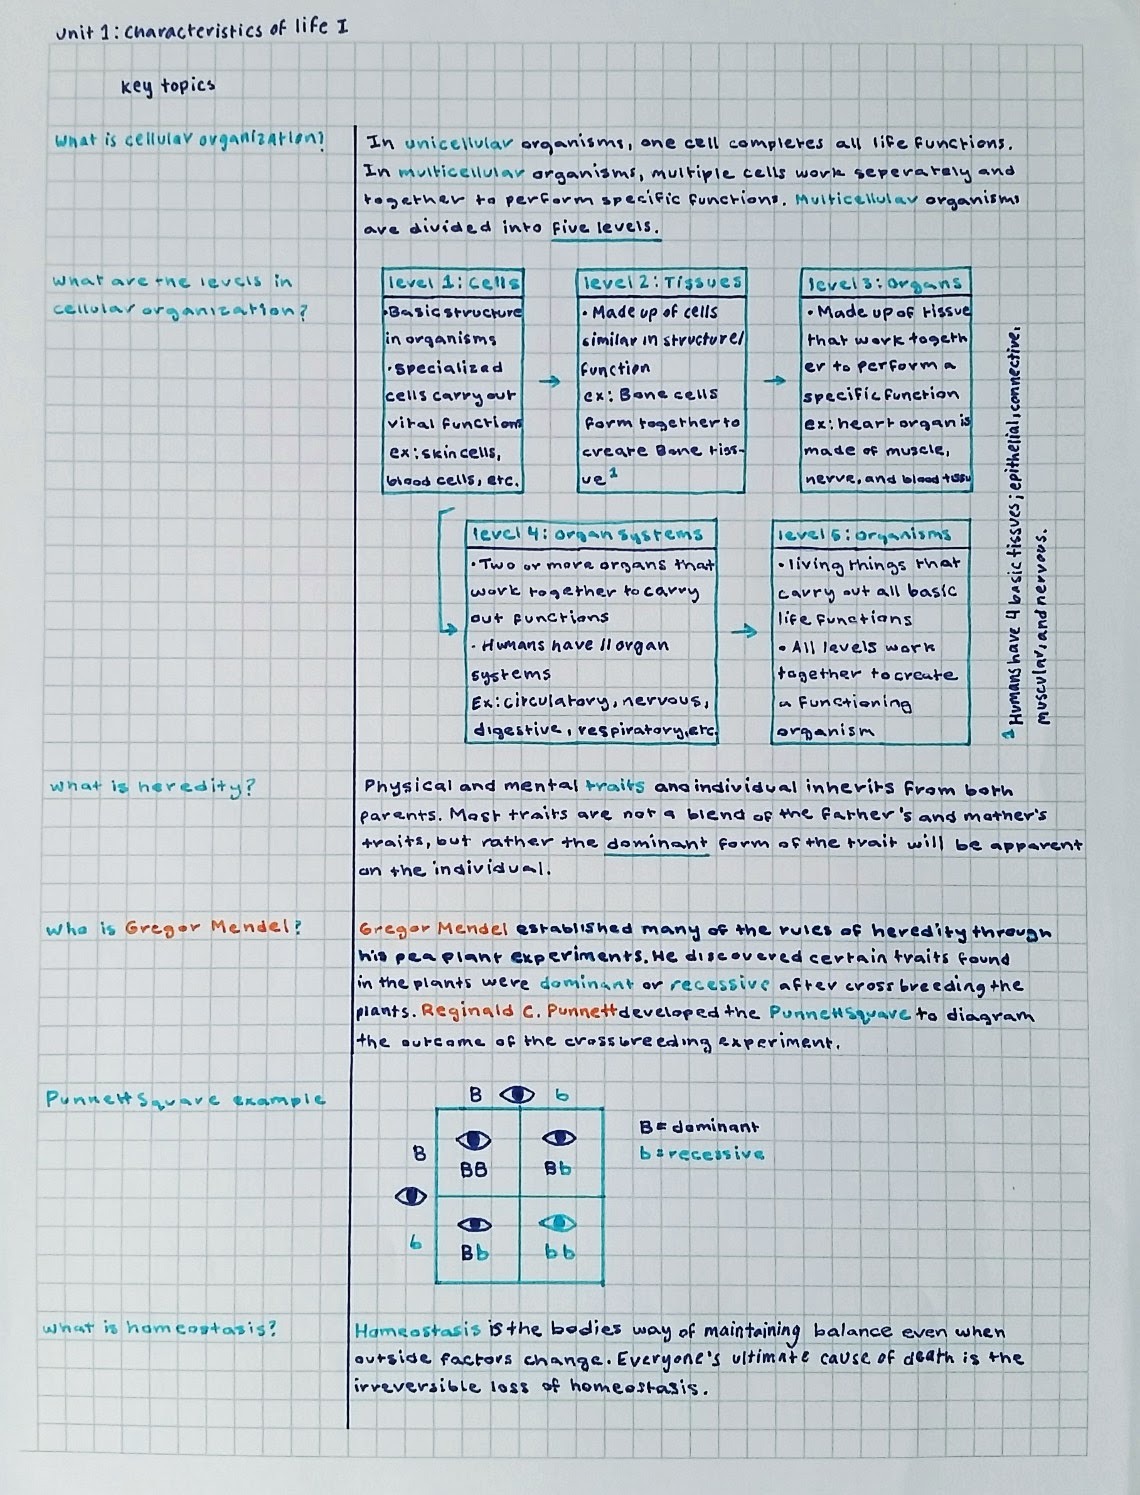 Unit 1: Characteristics of life I
Key topics
What is cellular organization?
In unicellular organisms, one cell completes all life functions.
In multicellular organisms, multiple cells work seperately and
together to perform specific functions. Multicellular organisms
are divided into five levels.
What are the levels in
cellular organization?
level 1: Cells
• Basic structure
in organisms
• specialized
cells carry out
vital functions
ex: skin cells,
blood cells, etc.
level 2: Tissues
• Made up of cells
similar in structure/
function
ex: Bone cells
form together to
create Bone tiss-
ue 1
level 3: Organs
• Made up of tissue
that work togeth
er to perform a
specific function
ex: heart organ is
made of muscle,
nerve, and blood tissu
1 Humans have 4 basic tissues; epithelial, connective,
muscular, and nervous.
level 4: organ systems
• Two or more organs that
work together to carry
out functions
• Humans have 11 organ
systems
Ex: circulatory, nervous,
digestive, respiratory, etc.
level 5: organisms
• living things that
carry out all basic
life functions
• All levels work
together to create
a functioning
organism
What is heredity?
Physical and mental traits an individual inherits from both
parents. Most traits are not a blend of the father's and mother's
traits, but rather the dominant form of the trait will be apparent
on the individual.
Who is Gregor Mendel?
Gregor Mendel established many of the rules of heredity through
his pea plant experiments. He discovered certain traits found
in the plants were dominant or recessive after cross breeding the
plants. Reginald C. Punnett developed the Punnett Square to diagram
the outcome of the crossbreeding experiment.
Punnett Square example
B b
B
BB Bb
b
Bb bb
B = dominant
b = recessive
What is homeostasis?
Homeostasis is the bodies way of maintaining balance even when
outside factors change. Everyone's ultimate cause of death is the
irreversible loss of homeostasis.